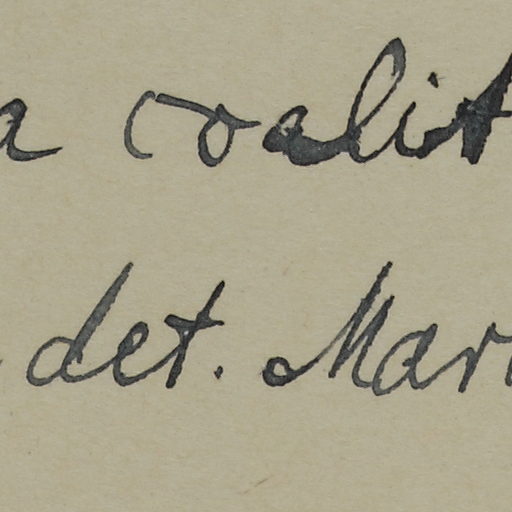 a coalit
det. Mar